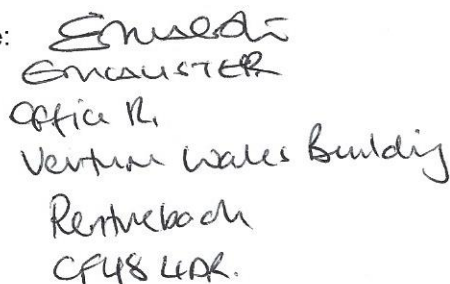 e:
EMCALISTER
Office 12,
Venture Wales Building
Pentrebach
CF48 4DR.